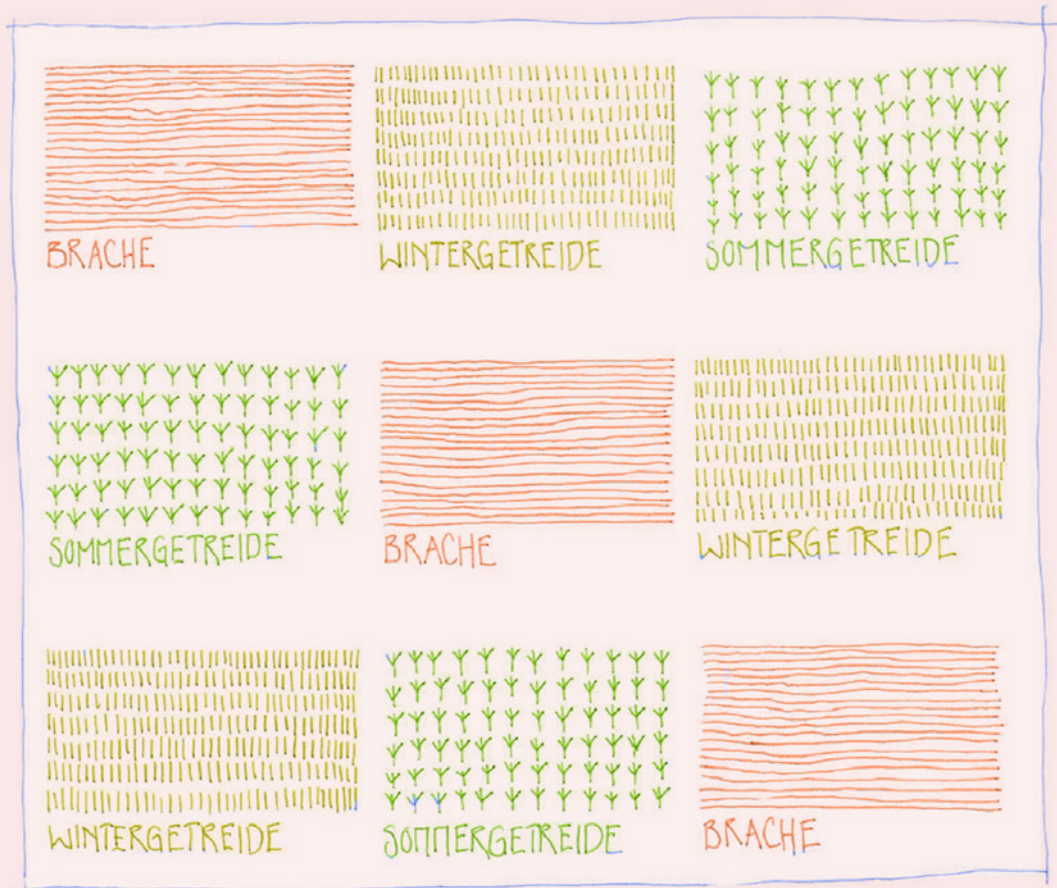 BRACHE
WINTERGETREIDE
SOMMERGETREIDE
SOMMERGETREIDE
BRACHE
WINTERGETREIDE
WINTERGETREIDE
SOMMERGETREIDE
BRACHE